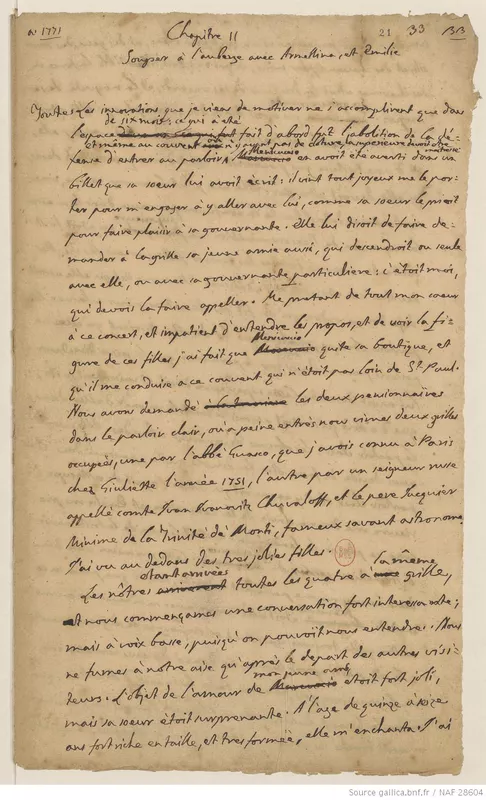 a: 1771
Chapitre II
21 33 1313
Souper à l'auberge avec Armelline, et Emilie
Toutes les innovations que je viens de motiver ne s'accomplirent que dans
de six mois: ce qui a été
l'espace fait d'abord fut l'abolition de la dé-
et même au couvent, où n'y ayant pas de cloture, la superieure devoit etre maitresse
fense d'entrer au parloir, Menicuccio en avoit eté averti dans un
billet que sa soeur lui avoit ecrit: il vint tout joyeux me le por-
ter pour m'engager à y aller avec lui, comme sa soeur le prioit
pour faire plaisir à sa gouvernante. Elle lui disoit de faire de-
mander à la grille sa jeune amie aussi, qui descendroit ou seule
avec elle, ou avec sa gouvernante particuliere: c'étoit moi,
qui devois la faire appeller. Me pretant de tout mon coeur
à ce concert, et impatient d'entendre les propos, et de voir la fi-
Menicuccio
gure de ces filles j'ai fait que quite sa boutique, et
qu'il me conduise a ce couvent qui n'étoit pas loin de St. Paul.
Nous avons demandé les deux pensionnaires
dans le parloir clair, où a peine entrés nous vimes deux grilles
occupées, une par l'abbé Guasco, que j'avois connu à Paris
chez Giuliette l'année 1751, l'autre par un seigneur russe
appellé comte Ivan Ivanovitz Chuvaloff, et le pere Jacquier
Minime de la Trinité de Monti, fameux savant astronome.
J'ai vu au dedans des tres jolies filles.
étant arrivées la même
Les nôtres toutes les quatre à grille,
nous commençames une conversation fort interessante;
mais à voix basse, puisqu'on pouvoit nous entendre. Nous
ne fumes à notre aise qu'après le depart des autres visi-
mon jeune ami
teurs. L'objet de l'amour de etoit fort joli,
mais sa soeur étoit surprenante. A l'age de quinze à seize
ans fort riche en taille, et tres formée, elle m'enchanta. J'ai
Source gallica.bnf.fr / NAF 28604